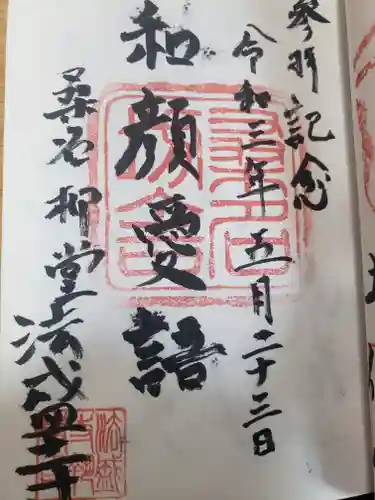 参拝記念
令和三年五月二十三日
和顔愛語
桑名別堂
法盛寺